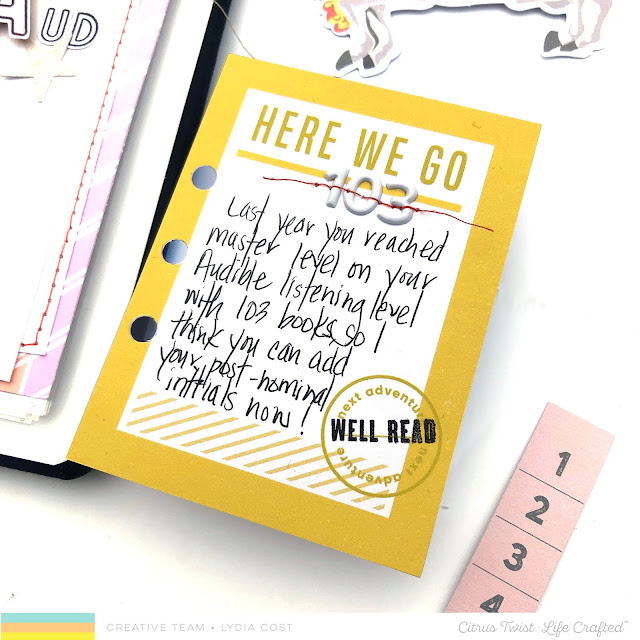 AUD
HERE WE GO
103
Last year you reached
master level on your
Audible listening level
with 103 books, so I
think you can add
your post-nominal
initials now!
next adventure
WELL READ
next adventure
1
2
3
4
CREATIVE TEAM • LYDIA COST
Citrus Twist · Life Crafted™